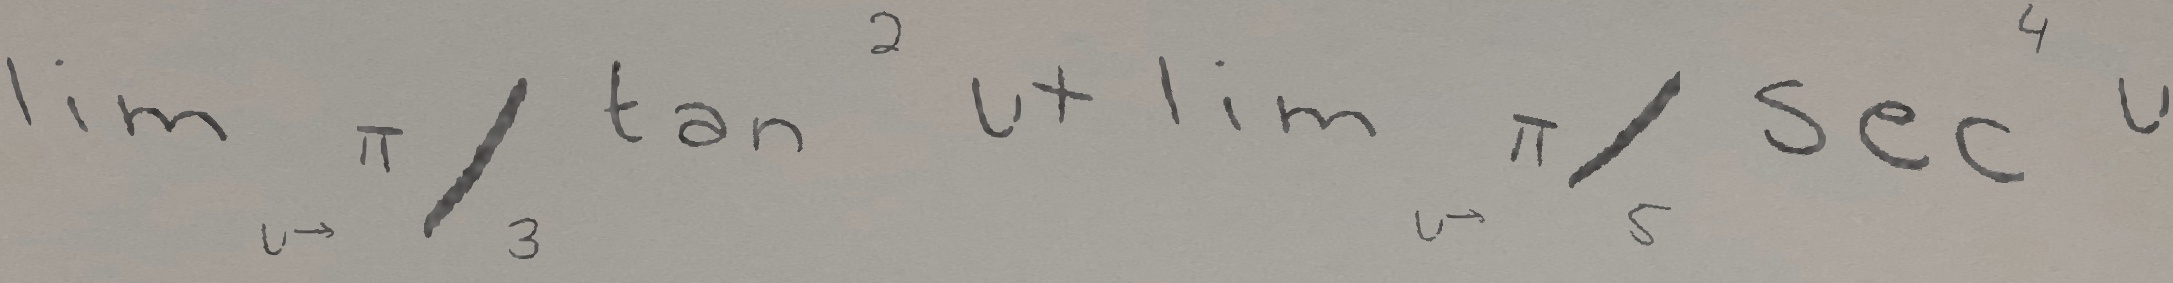 lim u→π/3 tan² u + lim u→π/5 sec⁴ u